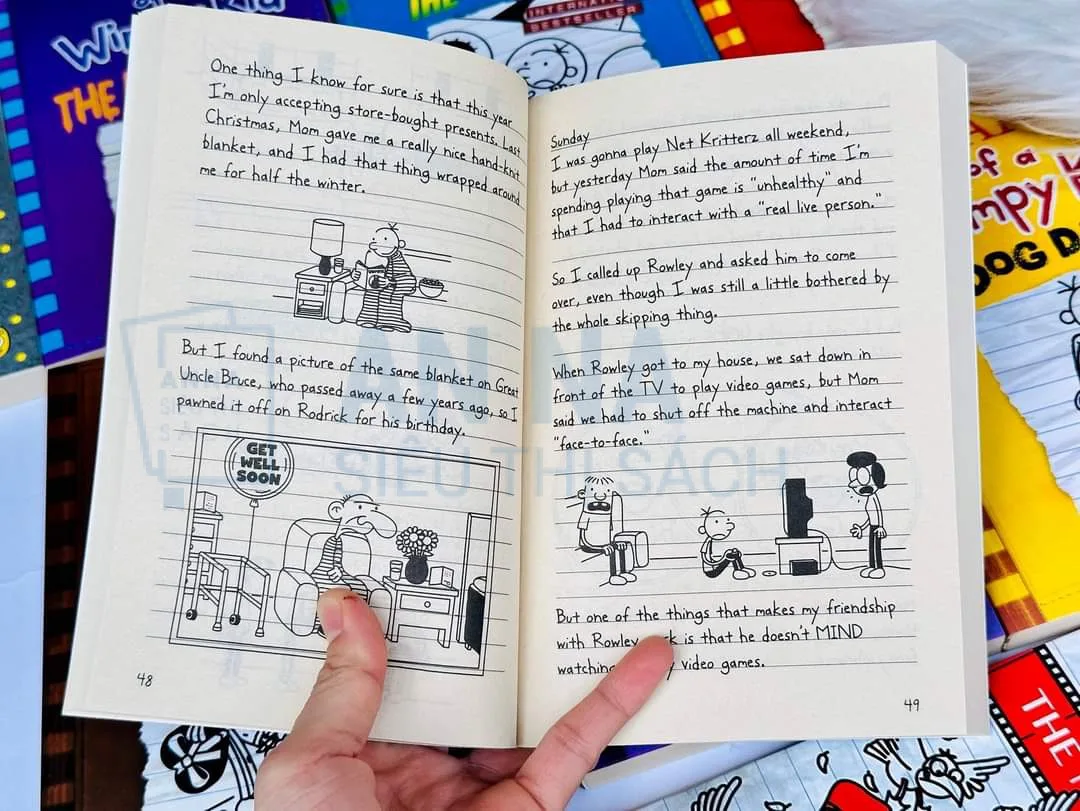 One thing I know for sure is that this year
I'm only accepting store-bought presents. Last
Christmas, Mom gave me a really nice hand-knit
blanket, and I had that thing wrapped around
me for half the winter.
But I found a picture of the same blanket on Great
Uncle Bruce, who passed away a few years ago, so I
pawned it off on Rodrick for his birthday.
GET
WELL
SOON
48
Sunday
I was gonna play Net Kritterz all weekend,
but yesterday Mom said the amount of time I'm
spending playing that game is "unhealthy" and
that I had to interact with a "real live person."
So I called up Rowley and asked him to come
over, even though I was still a little bothered by
the whole skipping thing.
When Rowley got to my house, we sat down in
front of the TV to play video games, but Mom
said we had to shut off the machine and interact
"face-to-face."
But one of the things that makes my friendship
with Rowley is that he doesn't MIND
watching video games.
49
AN NA
SIÊU THỊ SÁCH
THE
THE
INTERNATIONAL
BESTSELLER
of a
DOG D
THE